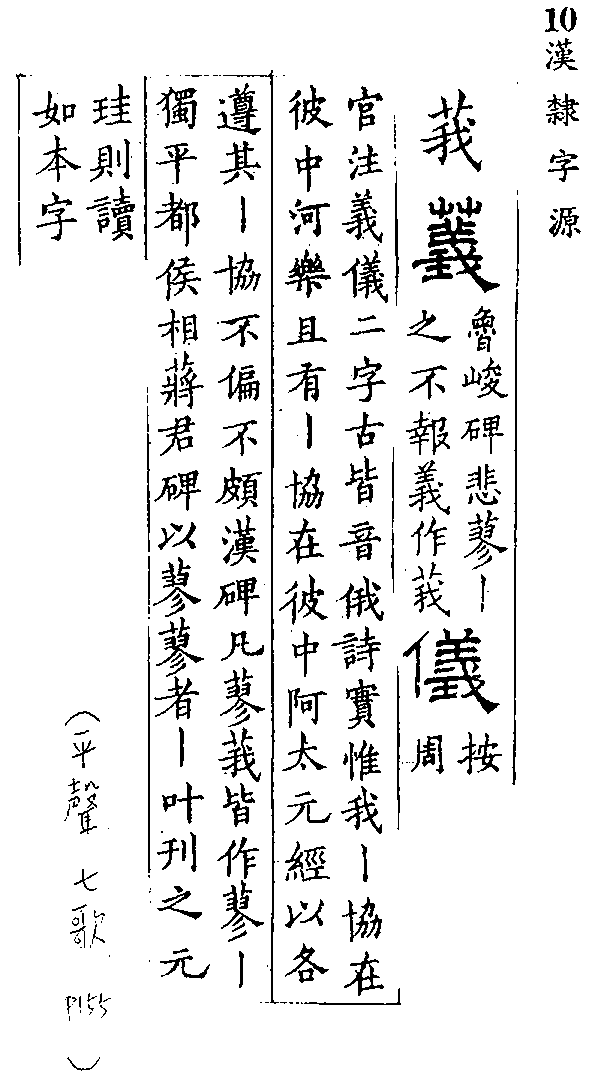 10漢隸字源
莪
䕏
魯峻碑悲蓼丨
之不報義作莪
儀
按
周
官注義儀二字古皆音俄詩實惟我丨協在
彼中河樂且有丨協在彼中阿太元經以各
遵其丨協不偏不頗漢碑凡蓼莪皆作蓼丨
獨平都侯相蔣君碑以蓼蓼者丨叶刋之元
珪則讀
如本字
(平聲七歌 P155)